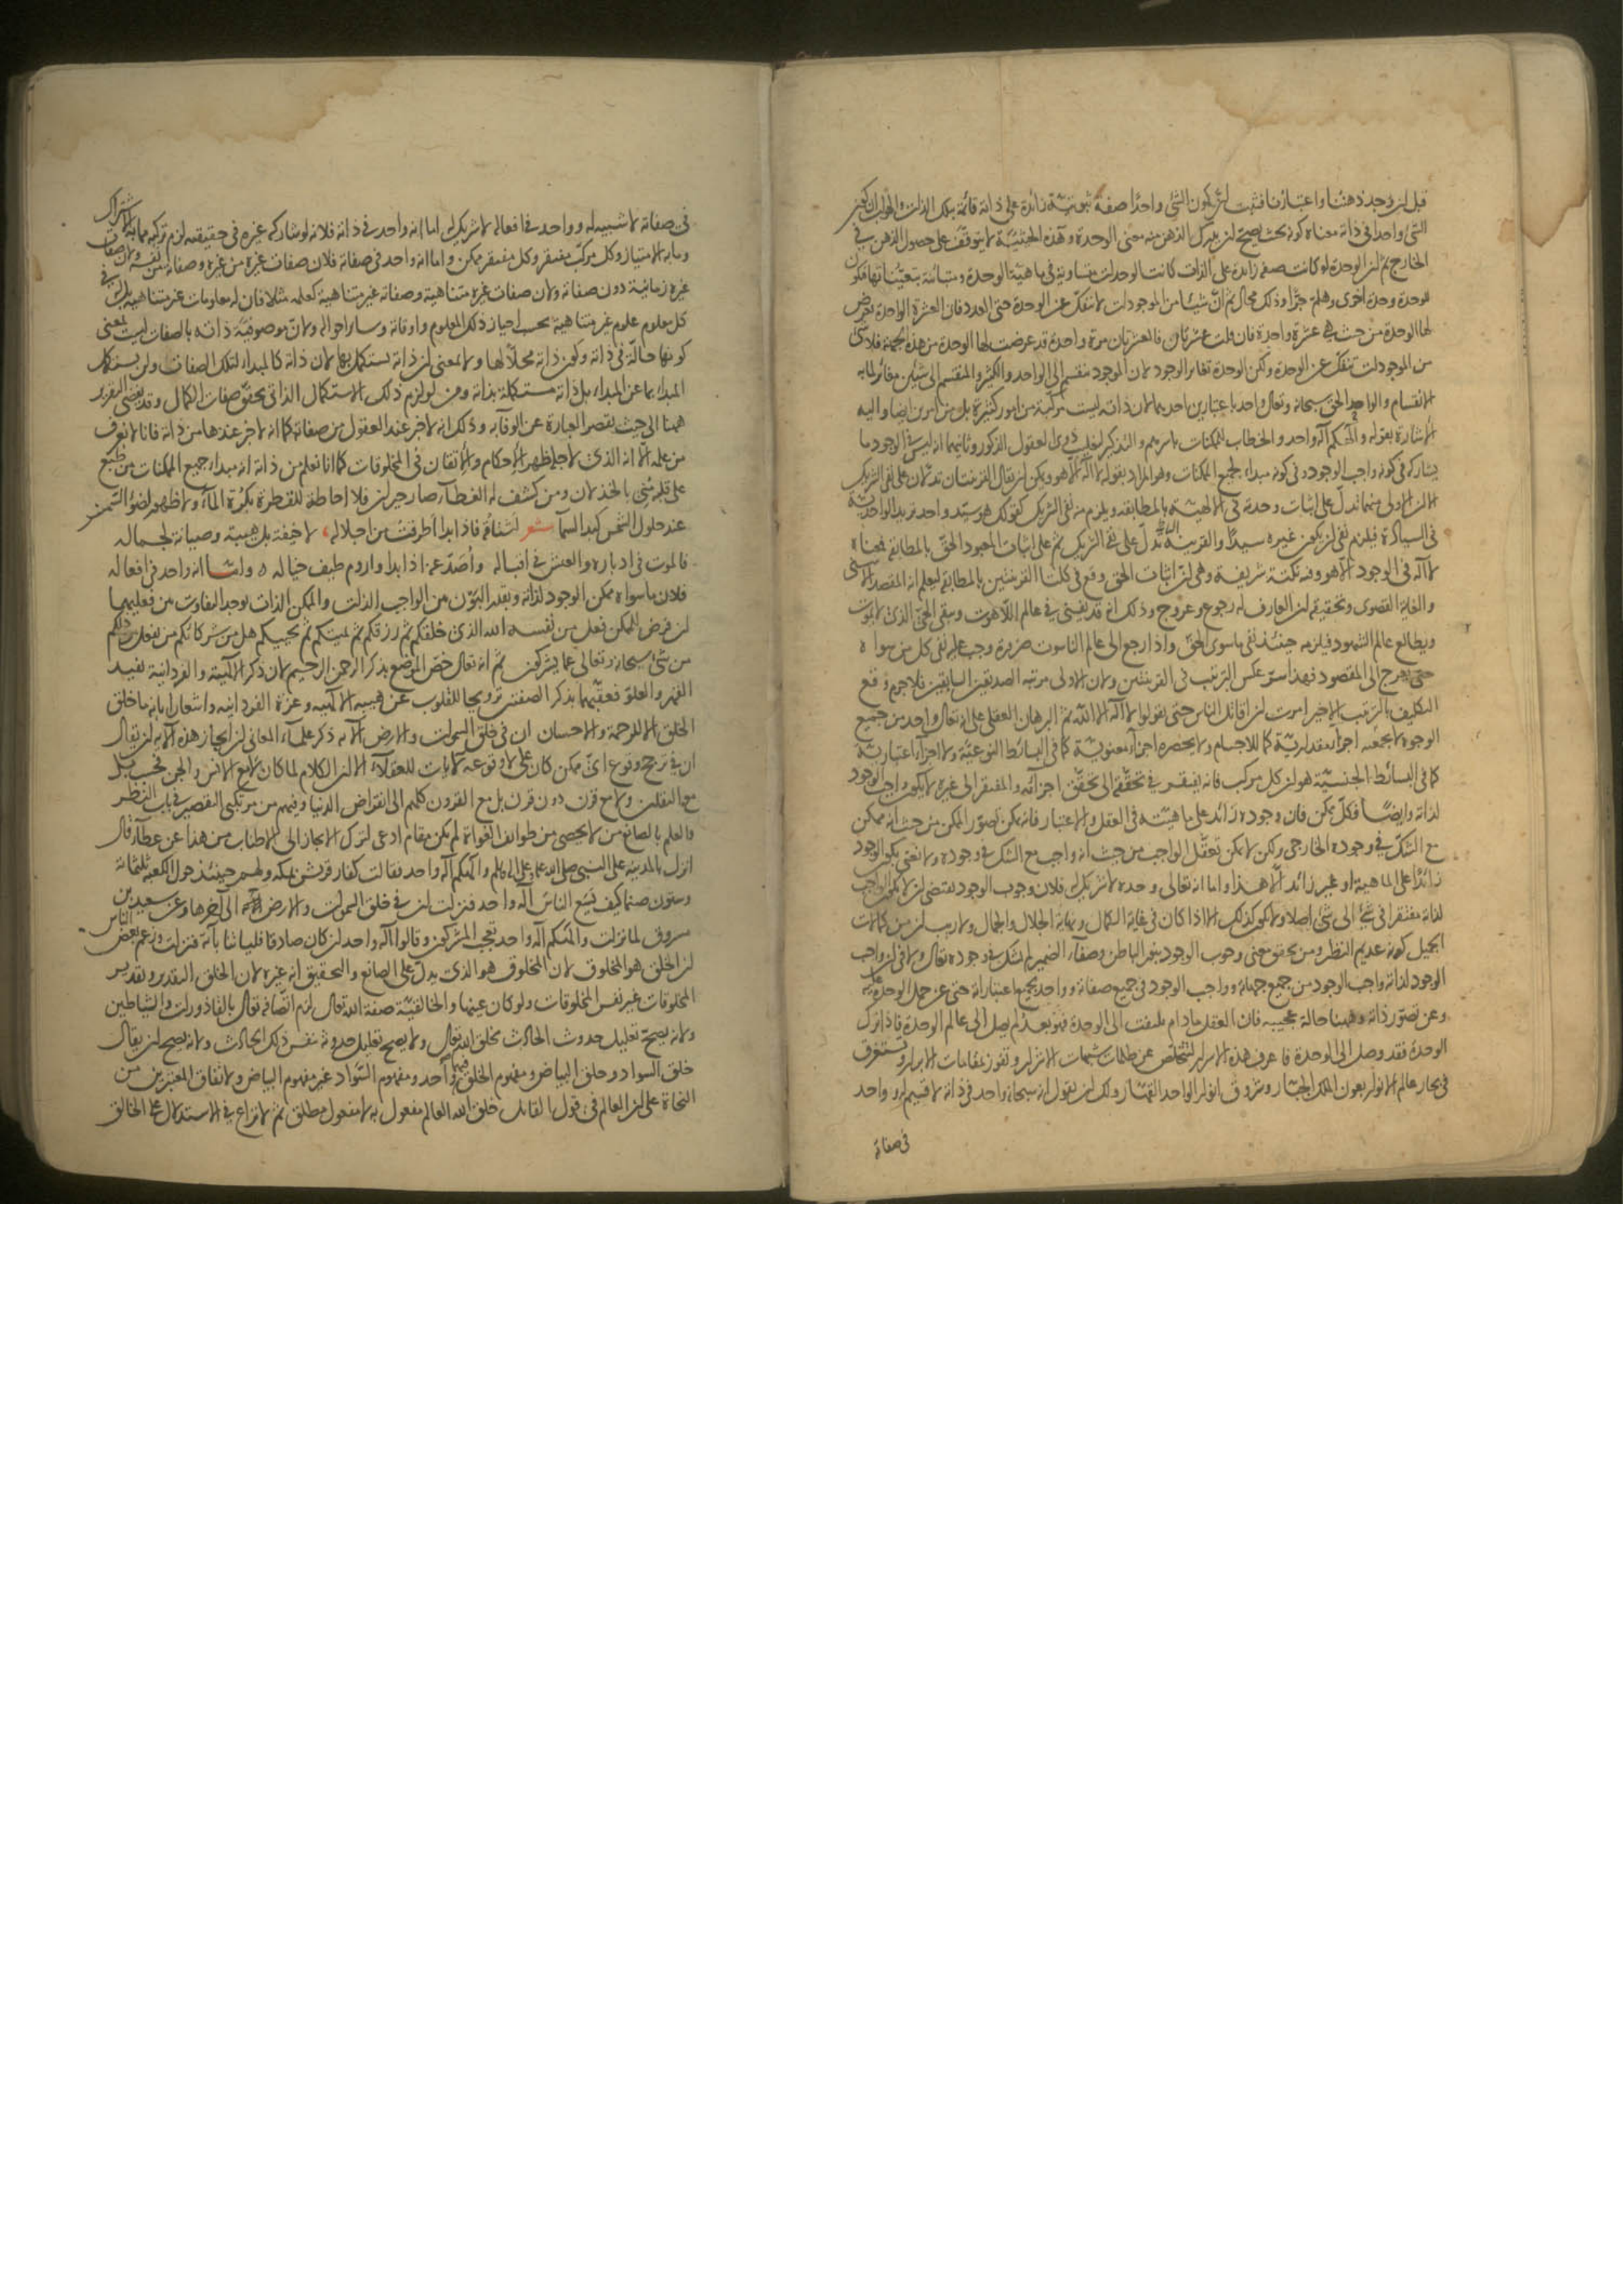 قبل ان وجد ذهننا واعتبارنا فثبت ان كون الشئ واحدا صفة ثبوتية زائدة على ذاته قائمة بتلك الذات والجواب ان كون
الشئ واحدا فى ذاته معناه كونه بحيث يصح ان يدرك الذهن منه معنى الوحدة وهذه الحيثية لا يتوقف على حصول الذهن فى
الخارج ثم ان الوحدة لو كانت صفة زائدة على الذات كانت الوحدات متساوية فى ماهية الوحدة ومتباينة بتعيناتها فيكون
للوحدة وحدة اخرى وهلم جرا وذلك محال ثم ان شيئا من الموجودات لا ينفك عن الوحدة حتى العدد فان العشرة الواحدة يعرض
لها الوحدة من حيث هى عشرة واحدة فان قلت عشرتان فالعشرتان مرة واحدة قد عرضت لها الوحدة من هذه الجهة فلا شئ
من الموجودات تنفك عن الوحدة ولكن الوحدة تغاير الوجود لان الموجود منقسم الى الواحد والكثير والمنقسم الى شيئين مغاير لما به
الانقسام والواحد الحق سبحانه وتعالى واحد باعتبارين احدهما ان ذاته ليست مركبة من امور كثيرة بل من امرين ايضا واليه
الاشارة بقوله والهكم اله واحد والخطاب للممكنات باسرهم والتذكير لتغليب ذوى العقول المذكور وثانيهما انه ليس فى الوجود ما
يشاركه فى كونه واجب الوجود وفى كونه مبداء لجميع الممكنات وهو المراد بقوله لا اله الا هو ويمكن ان يقال القرينتان تدلان على نفى الشريك
الا ان الاولى منهما تدل على اثبات وحدة فى الالهية بالمطابقة ويلزم منه نفى الشريك كقولك هو سيد واحد تريد الواحدية
فى السيادة فيلزم نفى ان يكون غيره سيدا والقرينة الثانية تدل على نفى الشريك ثم على اثبات المعبود الحق بالمطابقة فمعناه
لا اله فى الوجود الا هو وفيه نكتة شريفة وهى ان اثبات الحق وقع فى كلتا القرينتين بالمطابقة ليعلم انه المقصد الاسنى
والغاية القصوى وتحقيقه ان العارف له رجوع وعروج وذلك انه قد يفنى فى عالم اللاهوت ويبقى الحى الذى لا يموت
ويطالع عالم الشهود فيلزمه حينئذ نفى ما سوى الحق واذا رجع الى عالم الناسوت ضرورة وجب عليه نفى كل من سواه
حتى يعرج الى المقصود فهذا سر عكس الترتيب فى القرينتين ولان الاولى مرتبة الصديقين السابقين فلا جرم وقع
التكليف بالترتيب الاخير امرت ان اقاتل الناس حتى يقولوا لا اله الا الله ثم البرهان العقلى على انه تعالى واحد من جميع
الوجوه لا يجمعه اجزاء مقدارية كما للاجسام ولا يحصره اجزاء معنوية كما فى البسائط النوعية ولا اجزاء اعتبارية
كما فى البسائط الجنسية هو ان كل مركب فانه يفتقر فى تحققه الى تحقق اجزائه والمفتقر الى غيره لا يكون واجب الوجود
لذاته وايضا فكل ممكن فان وجوده زائد على ماهيته فى العقل والاعتبار فانه يمكن تصور الممكن من حيث انه ممكن
مع الشك فى وجوده الخارجى ولكن لا يمكن تعقل الواجب من حيث انه واجب مع الشك فى وجوده ولا نعنى بكون الوجود
زائدا على الماهية او غير زائد الا هذا واما انه تعالى وحده لا شريك له فلان وجوب الوجود يقتضى ان لا يكون الواجب
لذاته مفتقرا فى شئ الى شئ اصلا ولا يكون كذلك الا اذا كان فى غاية الكمال ونهاية الجلال والجمال ولا ريب ان من كمالات
الجميل كونه عديم النظير ومن تحقق معنى وجوب الوجود بنور الباطن وصفاء الضمير لم يشك فى وجوده تعالى ولا فى ان واجب
الوجود لذاته واجب الوجود من جميع جهاته وواجب الوجود فى جميع صفاته وواحد بجميع اعتباراته حتى عن حمل الوحدة عليه
وعن تصور ذاته وههنا حالة عجيبة فان العقل ما دام يلتفت الى الوحدة فهو بعد لم يصل الى عالم الوحدة فاذا ترك
الوحدة فقد وصل الى الوحدة فاعرف هذه الاسرار لتتخلص عن ظلمات شبهات الاشرار وتفوز بمقامات الابرار وتستغرق
فى بحار عالم الانوار بعون الملك الجبار وتروق بانوار الواحد القهار ولك ان تقول انه سبحانه واحد فى ذاته لا قسيم له وواحد
فى صفاته
فى صفاته لا شبيه له وواحد فى افعاله لا شريك له اما انه واحد فى ذاته فلانه لو شاركه غيره فى حقيقته لزم تركبه مما به الاشتراك
وما به الامتياز وكل مركب مفتقر وكل مفتقر ممكن واما انه واحد فى صفاته فلان صفات غيره من غيره وصفاته من نفسه ولان صفات
غيره زمانية دون صفاته ولان صفات غيره متناهية وصفاته غير متناهية كعلمه مثلا فان له معلومات غير متناهية بل له فى
كل معلوم علوم غير متناهية بحسب احياز ذلك المعلوم واوقاته وسائر احواله ولان موصوفية ذاته بالصفات ليست بمعنى
كونها حالة فى ذاته وكون ذاته محلا لها ولا بمعنى ان ذاته يستكمل بها لان ذاته كالمبداء لتلك الصفات ولن يستكمل
المبداء بما عن المبداء بل ذاته مستكملة بذاته ومن لوازم ذلك الاستكمال الذاتى تحقق صفات الكمال وقد يفضى التقرير
ههنا الى حيث تقصر العبارة عن الوفاء به وذلك انه لا خبر عند العقول من صفاته كما انه لا خبر عندها من ذاته فانا لا نعرف
من علمه الا انه الذى لاجله ظهر الاحكام والاتقان فى المخلوقات كما انا نعلم من ذاته انه مبداء جميع الممكنات من طبع
على قلبه منى بالخذلان ومن كشف له الغطاء صار حيران فلا احاطة للقطرة بكرة الماء ولا ظهور لضوء الشمس
عند حلول الشمس كبد السماء شعر اشتاقه فاذا بدا اطرقت من اجلاله لا خيفة بل هيبة وصيانة لجماله
فالموت فى ادباره والعيش فى اقباله واصد عنه اذا بدا واروم طيف خياله واما انه واحد فى افعاله
فلان ما سواه ممكن الوجود لذاته وبقدر البون من الواجب الذات والممكن الذات يوجد التفاوت من فعليهما
ان فرض للممكن فعل من نفسه الله الذى خلقكم ثم رزقكم ثم يميتكم ثم يحييكم هل من شركائكم من يفعل من ذلكم
من شئ سبحانه وتعالى عما يشركون ثم انه تعالى خص الموضع بذكر الرحمن الرحيم لان ذكر الالهية والفردانية تفيد
القهر والعلو فعقبهما بذكر الصفتين ترويحا للقلوب عن هيبة الالهية وعزة الفردانية واشعارا بانه ما خلق
الخلق الا للرحمة والاحسان ان فى خلق السموات والارض الآية ذكر علماء المعانى ان ايجاز هذه الآية ان يقال
ان فى ترجح وقوع اى ممكن كان على لا وقوعه لآيات للعقلاء الا ان الكلام لما كان لا مع الانس والجن فحسب بل
مع الثقلين ولا مع قرن دون قرن بل مع القرون كلهم الى انقراض الدنيا وفيهم من مرتكبى التقصير فى باب النظر
فالعلم بالصانع من لا يحصى من طوائف الغواة لم يكن مقام ادعى لترك الايجاز الى الاطناب من هذا عن عطاء قال
انزل بالمدينة على النبى صلى الله عليه وسلم والهكم اله واحد فقالت كفار قريش بمكة ولهم حينئذ حول الكعبة ثلثمائة
وستون صنما كيف يسع الناس اله واحد فنزلت ان فى خلق السموات والارض الى آخرها وعن سعيد بن
مسروق لما نزلت والهكم اله واحد تعجب المشركون وقالوا اله واحد ان كان صادقا فلياتنا بآية فنزلت وزعم بعض الناس
ان الخلق هو المخلوق لان المخلوق هو الذى يدل على الصانع والتحقيق انه غيره لان الخلق التقدير وتقدير
المخلوقات غير نفس المخلوقات ولو كان عينها والخالقية صفة الله تعالى لزم اتصافه تعالى بالقاذورات والشياطين
ولانه يصح تعليل حدوث الحادث بخلق الله تعالى ولا يصح تعليل حدوثه بنفس ذلك الحادث ولانه يصح ان يقال
خلق السواد وخلق البياض ومفهوم الخلق فيهما واحد ومفهوم السواد غير مفهوم البياض ولاتفاق المعتبرين من
النحاة على ان العالم فى قول القائل خلق الله العالم مفعول به لا مفعول مطلق ثم لا نزاع فى الاستدلال على الخالق